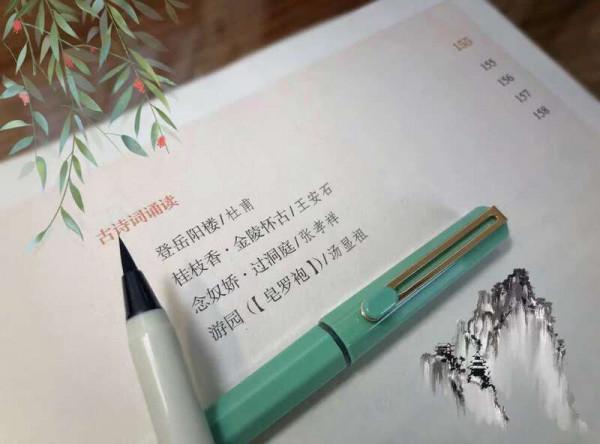 古诗词诵读 155
登岳阳楼/杜甫 155
桂枝香·金陵怀古/王安石 156
念奴娇·过洞庭/张孝祥 157
游园(【皂罗袍】)/汤显祖 158